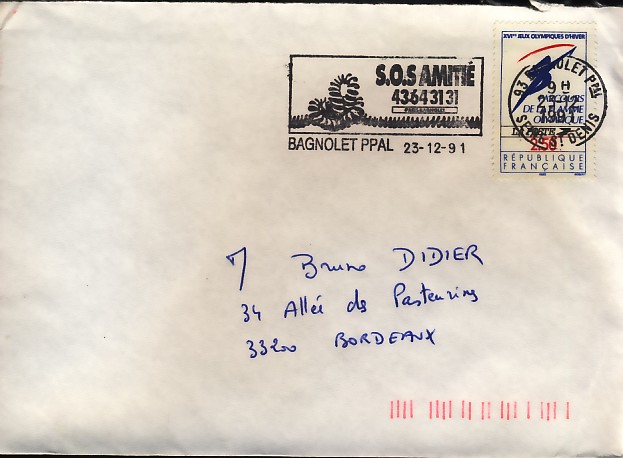 S.O.S AMITIÉ
43643131
BAGNOLET PPAL 23-12-91
XVIes JEUX OLYMPIQUES D'HIVER
PARCOURS
DE LA FLAMME
OLYMPIQUE
LA POSTE
2,50
RÉPUBLIQUE
FRANÇAISE
93 BAGNOLET PPAL
9H
1991
SEINE ST DENIS
Mr Bruno DIDIER
34 Allée des
33200 BORDEAUX